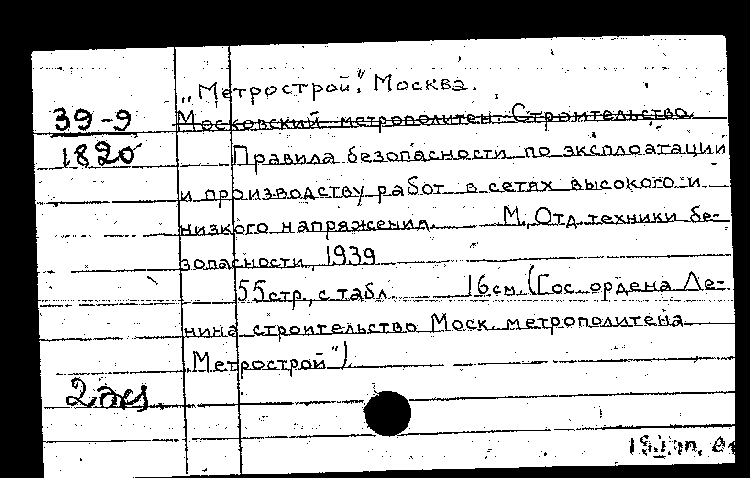 „Метрострой." Москва.
39-9 Московский метрополитен Строительство.
1820 Правила безопасности по эксплоатации
и производству работ в сетях высокого и
низкого напряжения. М., Отд. техники бе-
зопасности, 1939
55 стр., с табл. 16 см. (Гос. ордена Ле-
нина строительство Моск. метрополитена
„Метрострой")
2 экз.